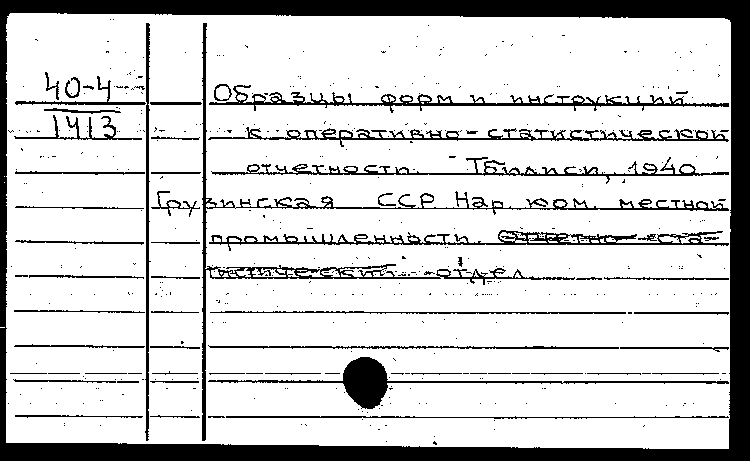 40-4
1413
Образцы форм и инструкций
к оперативно-статистической
отчетности. Тбилиси, 1940
Грузинская ССР Нар. ком. местной
промышленности. Отчетно-ста-
тистический отдел